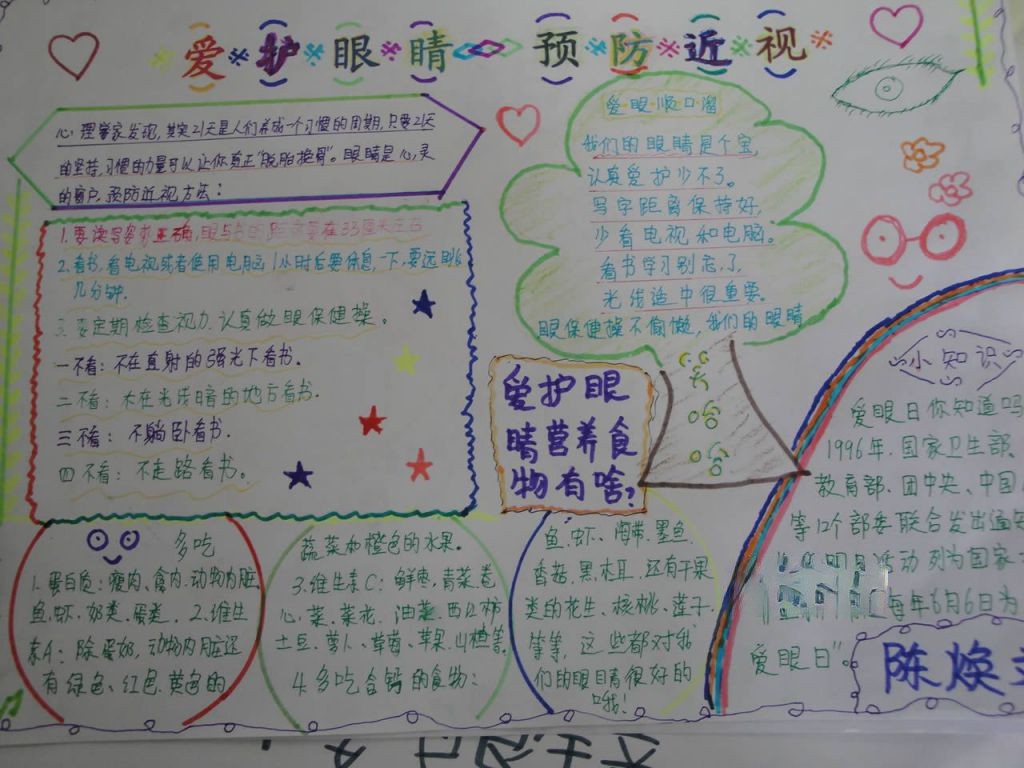 爱护眼睛 预防近视
心理学家发现,其实21天是人们养成一个习惯的周期,只要21天
的坚持,习惯的力量可以让你真正"脱胎换骨"。眼睛是心灵
的窗户,预防近视方法:
1.要读写姿势正确,眼与书的距离要在33厘米左右
2.看书,看电视或者使用电脑1小时后要休息一下,要远眺
几分钟.
3.要定期检查视力,认真做眼保健操。
一不看:不在直射的强光下看书.
二不看:不在光线暗的地方看书.
三不看:不躺卧看书.
四不看:不走路看书。
爱眼顺口溜
我们的眼睛是个宝,
认真爱护少不了。
写字距离保持好,
少看电视和电脑。
看书学习别忘了,
光线适中很重要。
眼保健操不偷懒,我们的眼睛
爱护眼
睛营养食
物有啥?
多吃
1.蛋白质:瘦肉、禽肉、动物内脏
鱼.虾.奶类、蛋类. 2.维生
素A:除蛋奶,动物内脏还
有绿色、红色.黄色的
蔬菜和橙色的水果。
3.维生素C:鲜枣.青菜.卷
心菜.菜花,油菜.西红柿
土豆.萝卜、草莓、苹果.山楂等.
4.多吃含钙的食物:
鱼.虾、海带.墨鱼.
香菇.黑木耳.还有干果
类的花生、核桃、莲子.
等等,这些都对我
们的眼睛很好的
哦!
小知识
爱眼日你知道吗
1996年.国家卫生部、
教育部、团中央、中国
等12个部委联合发出通知
活动列为国家
每年6月6日为
爱眼日".
陈焕